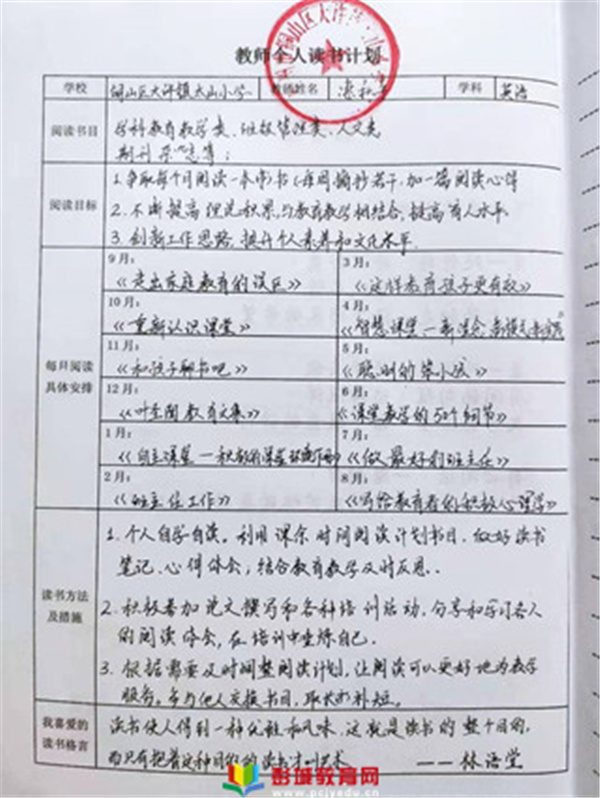 教师个人读书计划
学校 铜山区大许镇太山小学 教师姓名 学科 英语
阅读书目 学科教育教学类、班级管理类、人文类
期刊杂志等；
阅读目标 1.争取每个月阅读一本书（每周摘抄若干，加一篇阅读心得
2.不断提高 积累，与教育教学相结合，提高育人水平
3.创新工作思路，提升个人素养和文化水平．
每月阅读具体安排
9月：
《走出家庭教育的误区》
3月：
《这样教育孩子更有效》
10月：
《重新认识课堂》
4月：
《智慧课堂—新理念
11月：
《和孩子聊书吧》
5月：
《聪明的笨小孩》
12月：
《叶圣陶教育文集》
6月：
《课堂教学的50个细节》
1月：
《自主课堂—积极的课堂环境
7月：
《做最好的班主任》
2月：
《班主任工作》
8月：
《写给教育者的积极心理学》
读书方法及措施
1.个人自学自读。利用课余时间阅读计划书目，做好读书
笔记、心得体会，结合教育教学及时反思．
2.积极参加论文撰写和各种培训活动，分享和学习名人
的阅读体会，在培训中 自己．
3.根据需要及时调整阅读计划，让阅读可以更好地为教学
服务。多与他人交换书目，取长补短。
我喜爱的读书格言
读书使人得到一种优雅和风味，这就是读书的整个目的，
而只有抱着这种目的的读书才叫艺术 ——林语堂
彭城教育网
www.pcjyedu.cn